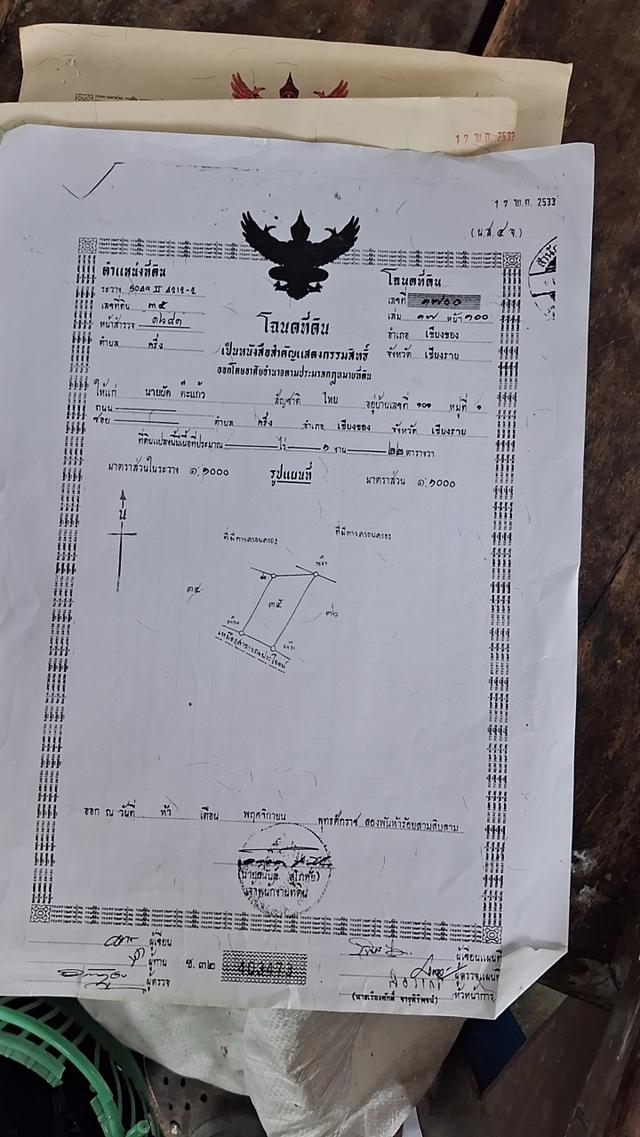 17 พ.ย. 2533
17 พ.ย. 2533
(น.ส.๔ จ.)
ตำแหน่งที่ดิน
ระวาง 5049 II 4212-2
เลขที่ดิน ๓๕
หน้าสำรวจ ๑๖๘๑
ตำบล ครึ่ง
โฉนดที่ดิน
เลขที่ ๑๗๐๐
เล่ม ๑๗ หน้า ๑๐๐
อำเภอ เชียงของ
จังหวัด เชียงราย
โฉนดที่ดิน
เป็นหนังสือสำคัญแสดงกรรมสิทธิ์
ออกโดยอาศัยอำนาจตามประมวลกฎหมายที่ดิน
ให้แก่ นายผัด ต๊ะแก้ว สัญชาติ ไทย อยู่บ้านเลขที่ ๑๐๑ หมู่ที่ ๑
ถนน
ซอย ตำบล ครึ่ง อำเภอ เชียงของ จังหวัด เชียงราย
ที่ดินแปลงนี้มีเนื้อที่ประมาณ ไร่ ๑ งาน ๒๒ ตารางวา
มาตราส่วนในระวาง ๑:๑๐๐๐ รูปแผนที่ มาตราส่วน ๑:๑๐๐๐
น
ที่มีการครอบครอง ที่มีการครอบครอง
๓๔ ๓๕ ๓๖
เหมืองสาธารณประโยชน์
ออก ณ วันที่ ห้า เดือน พฤศจิกายน พุทธศักราช สองพันห้าร้อยสามสิบสาม
เจ้าพนักงานที่ดิน
ผู้เขียน
ผู้ทาน
ผู้ตรวจ
ช.๓๒
ผู้เขียนแผนที่
ผู้ตรวจแผนที่
หัวหน้าการ